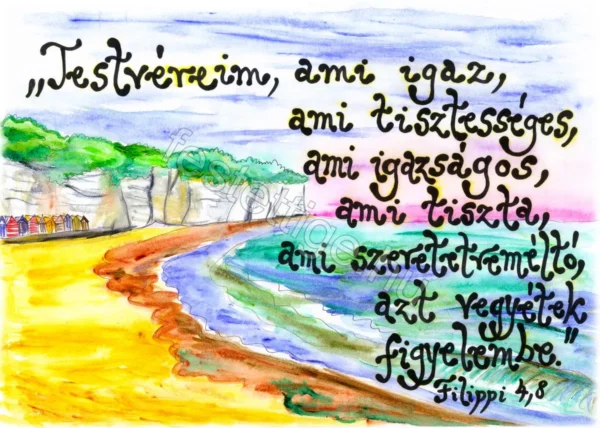 „Testvéreim, ami igaz,
ami tisztességes,
ami igazságos,
ami tiszta,
ami szeretetreméltó,
azt vegyétek
figyelembe.”
Filippi 4,8